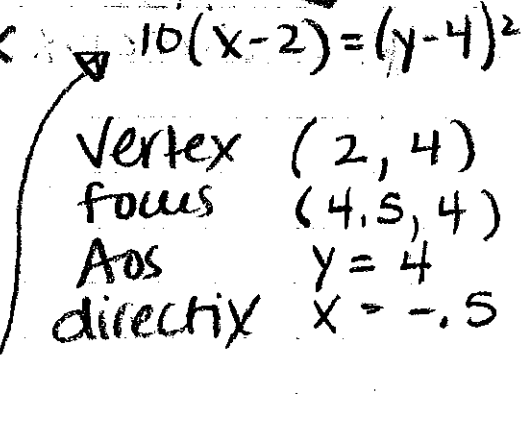 10(x-2)=(y-4)²
Vertex (2,4)
focus (4.5,4)
Aos y=4
directix x=-.5